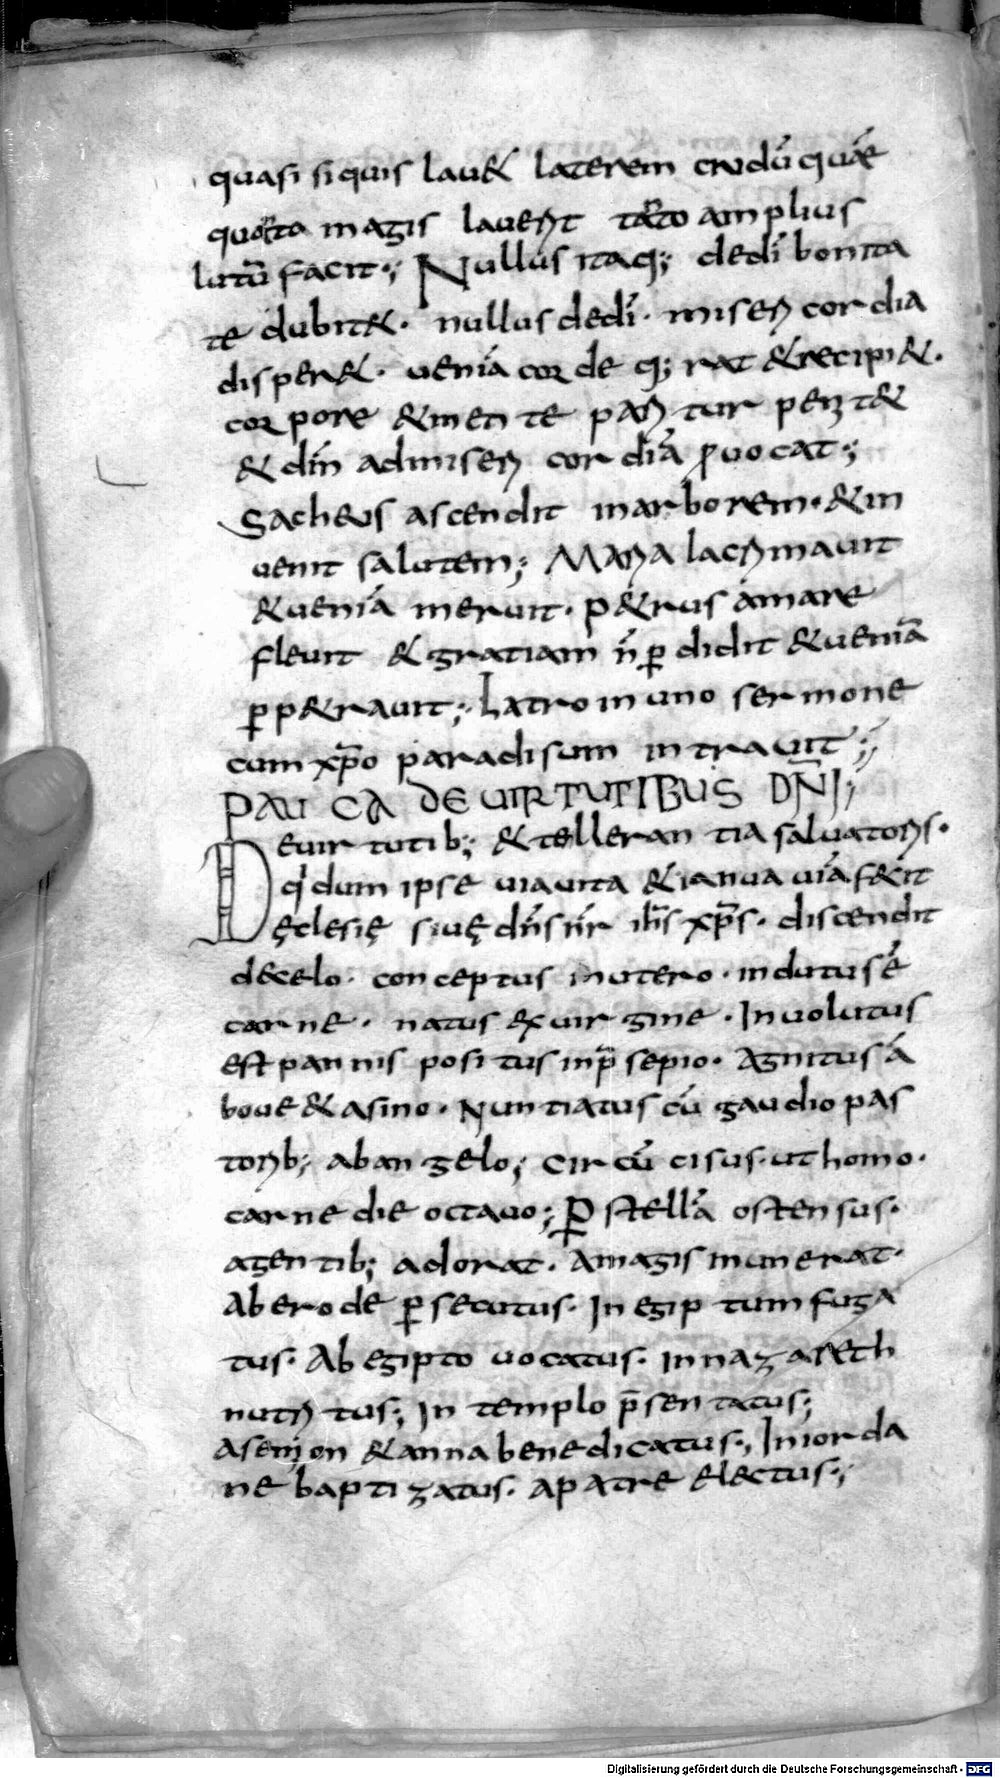 quasi siquis lau& laterem crudū quae
quāto magis lauerit tāto amplius
lutū facit·; Nullus itaq; dedī bonita
te dubit&· nullus dedī· misericordia
disper&· ueniā cor de q; rat &recipi&·
cor pore &men te pari tur penit&
& dn̄i admiseri cor diā ꝓuo cat·;
Sacheus ascendit inarborem· &in
uenit salutem; Maria lacrimauit
&ueniā meruit· p&rus amare
fleuit & gratiam n̄ ꝑ didit &ueniā
ꝑ p&rauit·; Latro in uno ser mone
cum xp̄o paradisum in trauit·;
PAUCA DE UIRTUTIBUS DN̄I;
Deuir tutib; & telleran tia saluatoris·
q̇dum ipse uiauita &ianua uiā fecit
ęclesię siuę dn̄s nr̄ ih̄s xp̄s· discendit
decelo· con ceptus inutero· indutus ē
carne· natus ex uir gine· Inuolutus
est pannis posi tus inp̄ sepio· Agnitus á
boue & asino· Nuntiatus cū gaudio pas
torib; aban gelo; Cir cū cisus· ut homo·
carne die octauo; ꝑ stellā ostensus·
agen tib; adorat· Amagis munerat·
Ab erode ꝑsecutus· In egip tum fuga
tus· Ab egipto uocatus· In nazareth
nutri tus·; In templo p̄sen tatus·;
Asemion &anna benedicatus·, In iorda
ne baptizatus· apatre electus·;
Digitalisierung gefördert durch die Deutsche Forschungsgemeinschaft - DFG